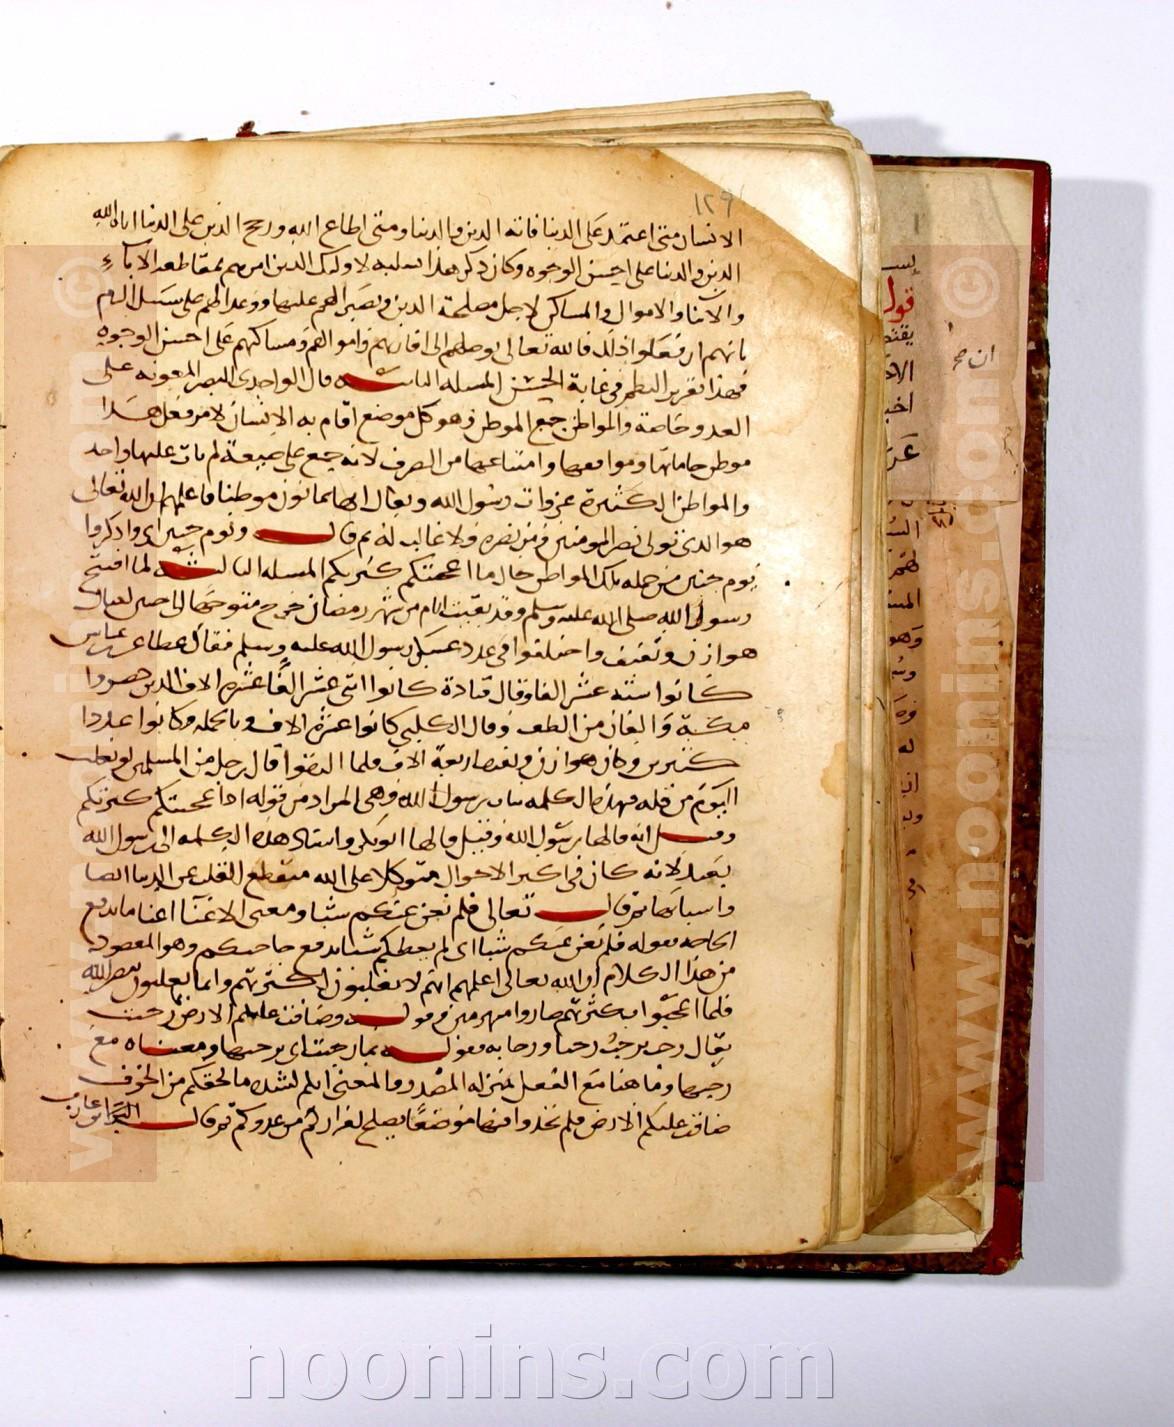 ١٢٩
الانسان متى اعتمد على الدنيا فاته الدين والدنيا ومتى اطاع الله ورجح الدين على الدنيا اتاه الله
الدين والدنيا على احسن الوجوه وكان ذكر هذا تسلية لاولئك الذين امرهم بمقاطعة الاباء
والابنا والاموال والمساكن لاجل مصلحة الدين وتصبيرا لهم عليها ووعدا لهم على سبيل الرمز
بانهم ان فعلوا ذلك فالله تعالى يوصلهم الى اقاربهم واموالهم ومساكنهم على احسن الوجوه
فهذا تقرير النظم في غاية الحسن المسله الثانيه قال الواحدي النصر المعونه على
العدو خاصة والمواطن جمع الموطن وهو كل موضع اقام به الانسان لامر فعلى هذا
موطن حاماتها ومواقعها وامتناعها من الصرف لانه جمع على صيغة لم يات عليها واحد
والمواطن الكثيرة غزوات رسول الله ويقال انها ثمانون موطنا فاعلمهم الله تعالى
هو الذي تولى نصر المومنين ومن نصره فلا غالب له ثم قال ويوم حنين اي واذكروا
يوم حنين من جملة تلك المواطن حال ما اعجبتكم كثرتكم المسله الثالثه لما افتتح
رسول الله صلى الله عليه وسلم وقد بقيت ايام من شهر رمضان خرج متوجها الى حنين لقتال
هوازن وثقيف واختلفوا في عدد عسكر رسول الله عليه وسلم فقال عطا عن ابن عباس
كانوا ستة عشر الفا وقال قتادة كانوا اثنى عشر الفا عشرة الاف الذين حضروا
مكة والفان من الطلقا وقال الكلبي كانوا عشرة الاف وبالجملة وكانوا عددا
كثيرين وكان هوازن وثقيف اربعة الاف فلما التقوا قال رجل من المسلمين لن نغلب
اليوم من قلة فهذه الكلمه ساءت رسول الله وهي المراد من قوله اذا عجبتكم كثرتكم
وقيل انه قالها رسول الله وقيل قالها ابوبكر واسناد هذه الكلمه الى رسول الله
بعيد لانه كان في اكثر الاحوال متوكلا على الله منقطع القلب عن الدنيا
واسبابها ثم قال تعالى فلم تغن عنكم شيا ومعنى الاغنا اعطا ما يدفع
الحاجه فقوله فلم تغن عنكم شيا اي لم يعطكم شيا يدفع حاجتكم وهو المقصود
من هذا الكلام ان الله تعالى اعلمهم انهم لا يغلبون بكثرتهم وانما يغلبون بنصر الله
فلما اعجبوا بكثرتهم صاروا منهزمين ثم قوله وضاقت عليكم الارض بما رحبت
يقال رحب يرحب رحبا ورحابه فقوله بما رحبت اي برحبها ومعناه مع
رحبها وما هنا مع الفعل بمنزلة المصدر والمعنى انكم لشدة ما لحقكم من الخوف
ضاقت عليكم الارض فلم تجدوا فيها موضعا يصلح لفراركم من عدوكم ثم قال
ان صح
قول
www.noonins.com
noonins.com